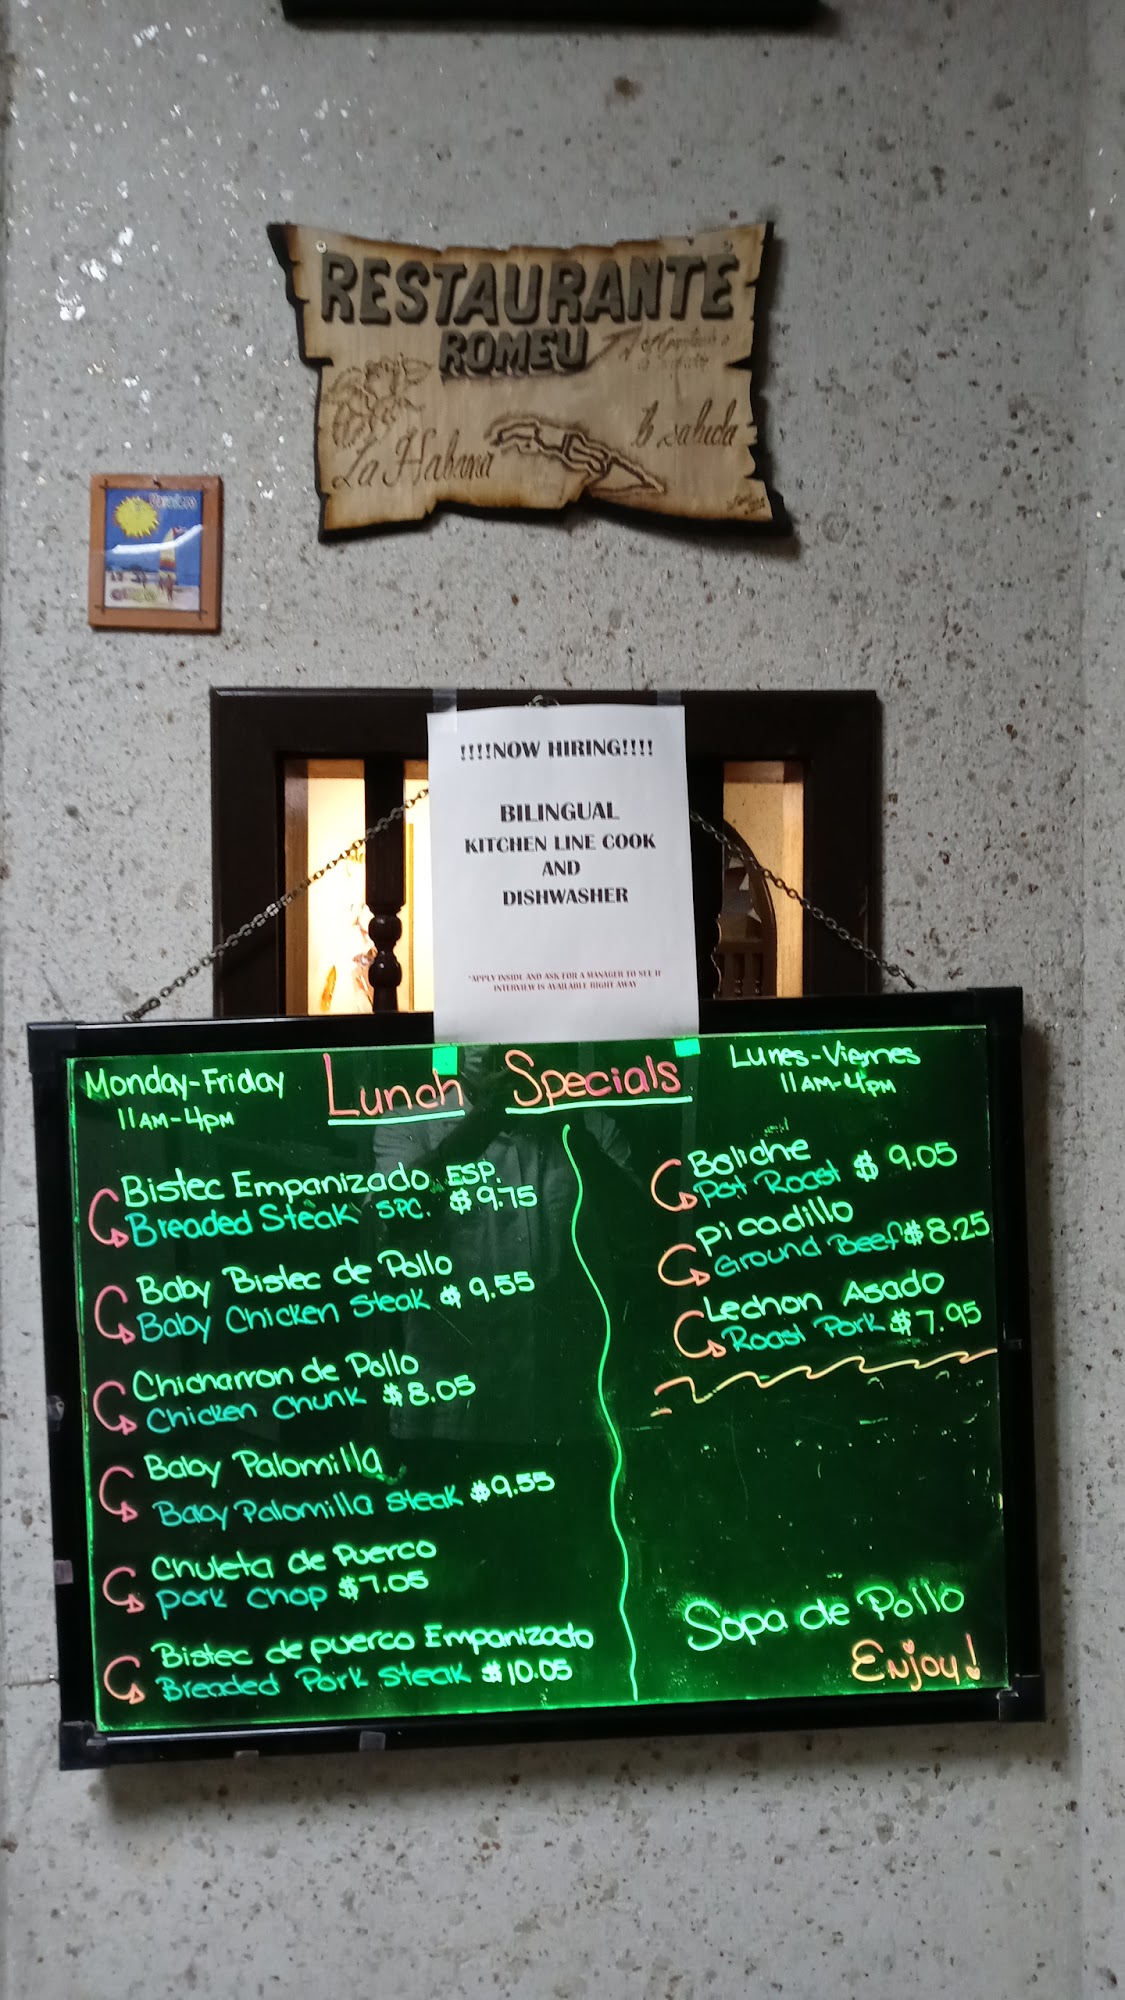 RESTAURANTE
ROMEU
La Habana
saluda
Varadero
CUBA
!!!!NOW HIRING!!!!
BILINGUAL
KITCHEN LINE COOK
AND
DISHWASHER
*APPLY INSIDE AND ASK FOR A MANAGER TO SEE IF
INTERVIEW IS AVAILABLE RIGHT AWAY
Monday-Friday
11AM-4PM
Lunch Specials
Lunes-Viernes
11AM-4PM
Bistec Empanizado ESP.
Breaded Steak SPC. $9.75
Baby Bistec de Pollo
Baby Chicken Steak $9.55
Chicharron de Pollo
Chicken Chunk $8.05
Baby Palomilla
Baby Palomilla Steak $9.55
Chuleta de Puerco
Pork Chop $7.05
Bistec de puerco Empanizado
Breaded Pork Steak $10.05
Boliche
Pot Roast $9.05
Picadillo
Ground Beef $8.25
Lechon Asado
Roast Pork $7.95
Sopa de Pollo
Enjoy!